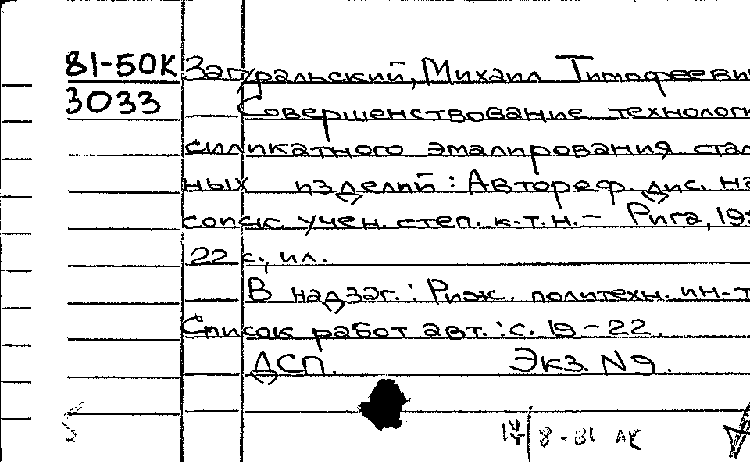 81-50К Загуральский, Михаил Тимофеевич
3033 Совершенствование технологи
силикатного эмалирования сталь
ных изделий: Автореф. дис. на
соиск. учен. степ. к.т.н. - Рига, 19
22 с., ил.
В надзаг.: Риж. политехн. ин-т
Список работ авт.: с. 19-22.
ДСП. Экз. N9.
8-81